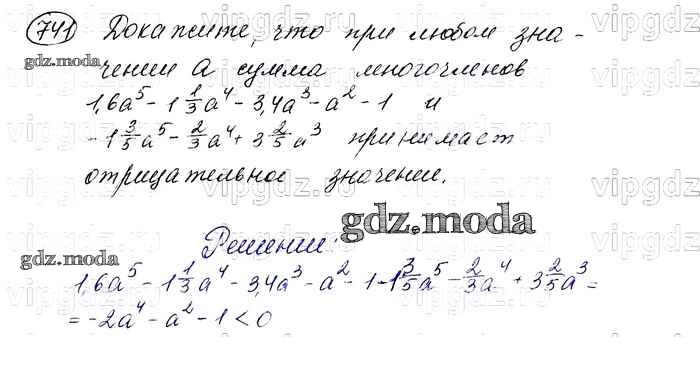 741 Докажите, что при любом зна-
gdz.moda
чении a сумма многочленов
1,6a⁵ - 1 1/3 a⁴ - 3,4a³ - a² - 1 и
-1 3/5 a⁵ - 2/3 a⁴ + 3 2/5 a³ принимает
отрицательное значение.
gdz.moda
Решение:
gdz.moda
1,6a⁵ - 1 1/3 a⁴ - 3,4a³ - a² - 1 - 1 3/5 a⁵ - 2/3 a⁴ + 3 2/5 a³ =
= -2a⁴ - a² - 1 < 0